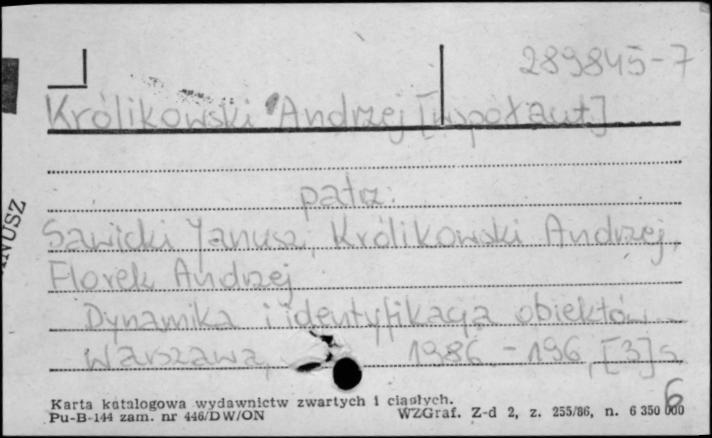 289845-7
Królikowski Andrzej [współaut]
patrz:
Sawicki Janusz, Królikowski Andrzej,
Florek Andrzej
Dynamika i identyfikacja obiektów
Warszawa, 1986. - 196, [3] s
Karta katalogowa wydawnictw zwartych i ciągłych.
Pu-B-144 zam. nr 446/DW/ON WZGraf. Z-d 2, z. 255/86, n. 6 350 000
6